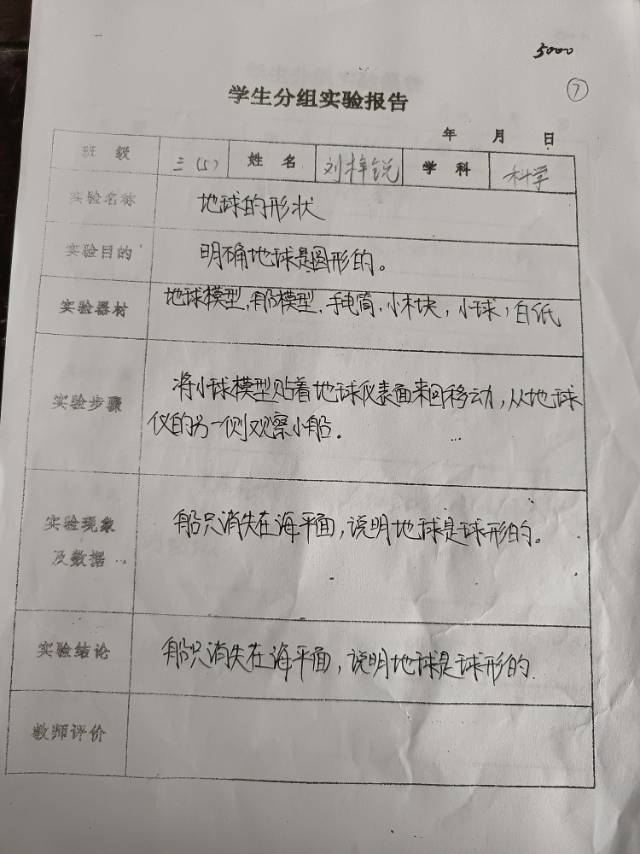 5000
7
学生分组实验报告
年 月 日
班级 三(5) 姓名 刘梓锐 学科 科学
实验名称 地球的形状
实验目的 明确地球是圆形的。
实验器材 地球模型,船模型,手电筒,小木块,小球,白纸
将小球模型贴着地球仪表面来回移动,从地球
实验步骤
仪的另一侧观察小船。
实验现象 船只消失在海平面,说明地球是球形的。
及数据
实验结论 船只消失在海平面,说明地球是球形的.
教师评价